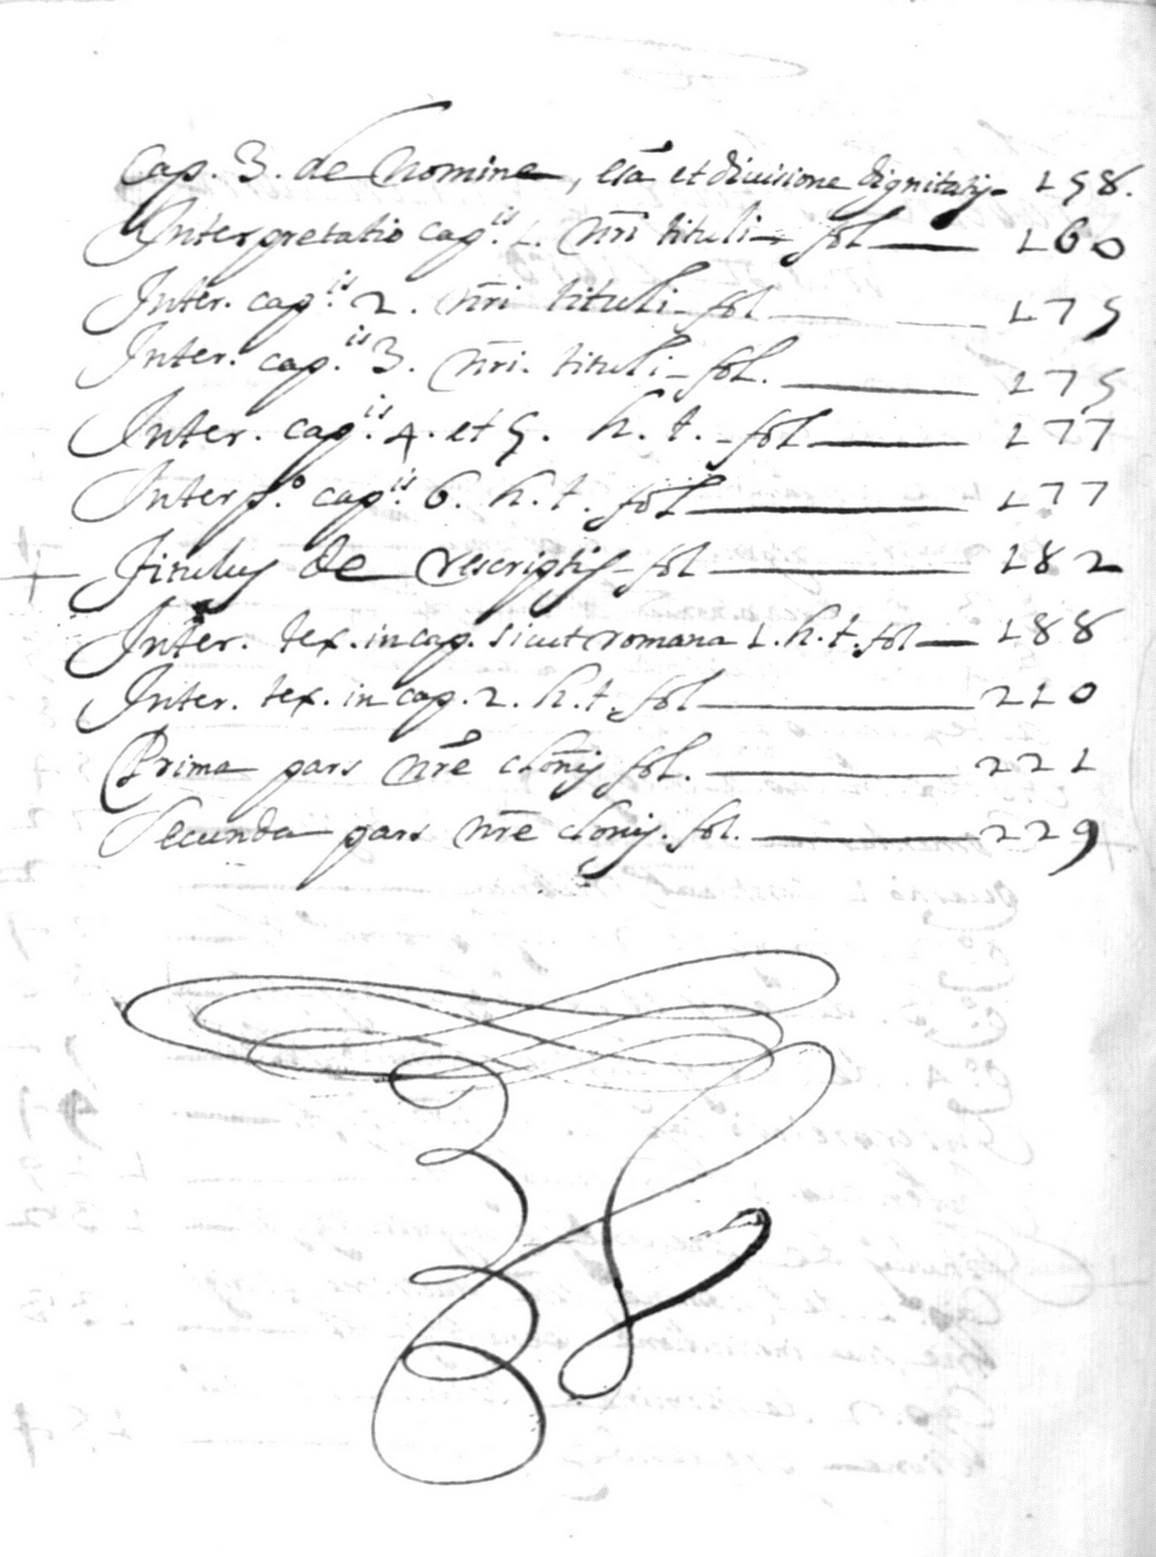 Cap. 3. de Nomine, essã et divisione dignitatis 158.
Interpretatio cap.is 1. nr̃i tituli fol 160
Inter. cap.is 2. nr̃i tituli fol 175
Inter. cap.is 3. nr̃i. tituli fol. 175
Inter. cap.is 4. et 5. h. t. fol 177
Interp.o cap.is 6. h. t. fol 177
Titulus de rescriptis fol 182
Inter. tex. in cap. sicut romana 1. h. t. fol 188
Inter. tex. in cap. 2. h. t. fol 210
Prima pars nr̃e clõnis fol. 221
Secunda pars nr̃e clonis. fol. 229